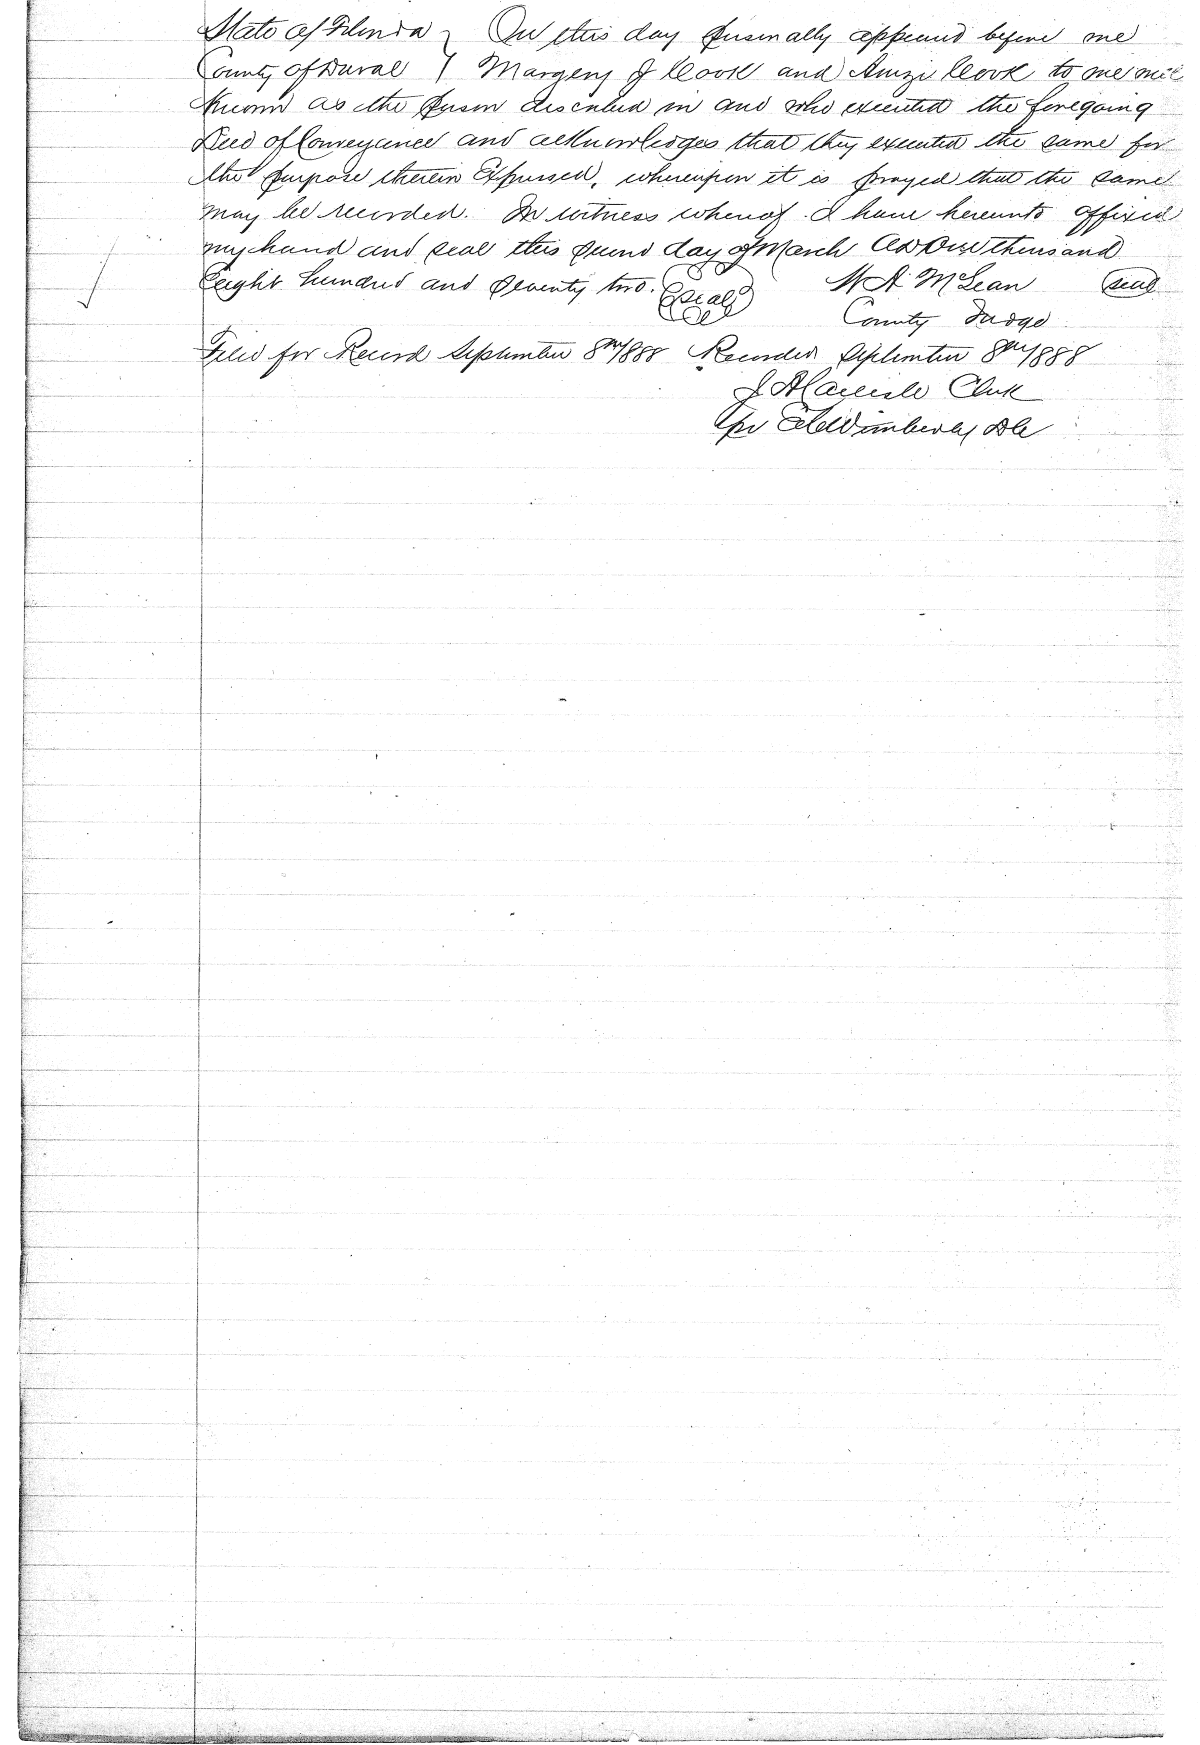 State of Florida } On this day personally appeared before me
County of Duval } Margery J Cook and Amzi Cook to me well
Known as the person described in and who executed the foregoing
Deed of Conveyance and acknowledges that they executed the same for
the purpose therein Expressed, whereupon it is prayed that the same
may be recorded. In witness whereof I have hereunto affixed
my hand and seal this second day of March AD One thousand
Eight hundred and seventy two. (seal) W A McLean (seal)
County Judge
Filed for Record September 8th/1888 Recorded September 8th/1888
J A Carlisle Clerk
per Wimberly DC